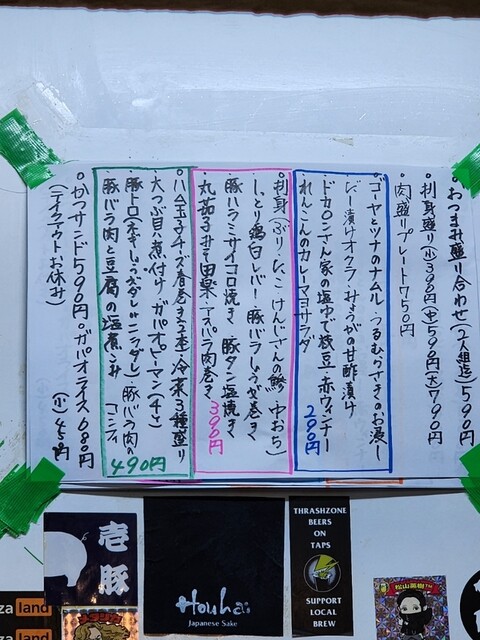 おつまみ盛り合わせ(2人組迄)590円
刺身盛り(小)390円(中)590円(大)790円
肉盛りプレート750円
ゴーヤとツナのナムル・つるむらさきのお浸し
ビール漬けオクラ・みょうがの甘酢漬け
ドカロンさん家の塩ゆで枝豆・赤ウィンナー
れんこんのカレーマヨサラダ 290円
刺身(ぶり・たこ・けんじさんの鯵・中おち)
しっとり鶏白レバー・豚バラしょうが巻き
豚ハラミサイコロ焼き・豚タン塩焼き
丸茄子みそ田楽・アスパラ肉巻き 390円
ハム玉子チーズ春巻き2本・冷菜3種盛り
大つぶ貝煮付け・ガパオピーマン(4ケ)
豚トロ(ねぎしょうがダレorニンダレ)・豚バラ肉の
豚バラ肉と豆腐の塩煮こみ コンフィ
490円
かつサンド590円・ガパオライス680円
(テイクアウトお休み) (小)450円
壱
豚
Houhai
Japanese Sake
THRASHZONE
BEERS
ON
TAPS
SUPPORT
LOCAL
BREW
land
land